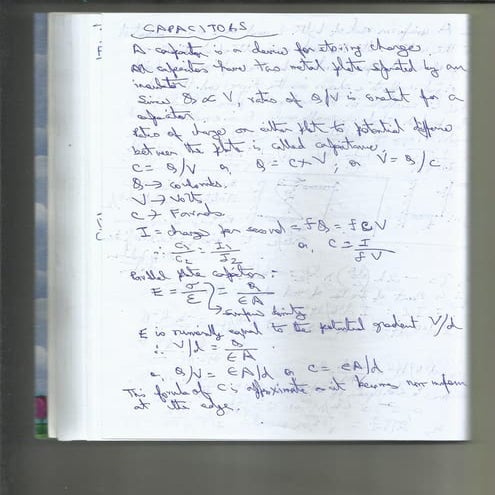 CAPACITORS
A capacitor is a device for storing charges.
All capacitors have two metal plate separated by an
insulator
Since Q ∝ V, ratio of Q/V is constat for a
capacitor.
Ratio of charge on either plate to potential difference
between the plate is called capacitance.
C = Q/V or Q = C×V, or V = Q/C
Q → coulombs.
V → Volts
C → Farads
I = charge per second = fQ = fCV
∴ C1/C2 = I1/I2 or, C = I/fV
Parallel plate capacitor :-
E = σ/ε = Q/εA
→ surface density
E is numerically equal to the potential gradient V/d
∴ V/d = Q/εA
or, Q/V = εA/d or C = εA/d
This formula of C is approximate as it becomes non uniform
at the edge.